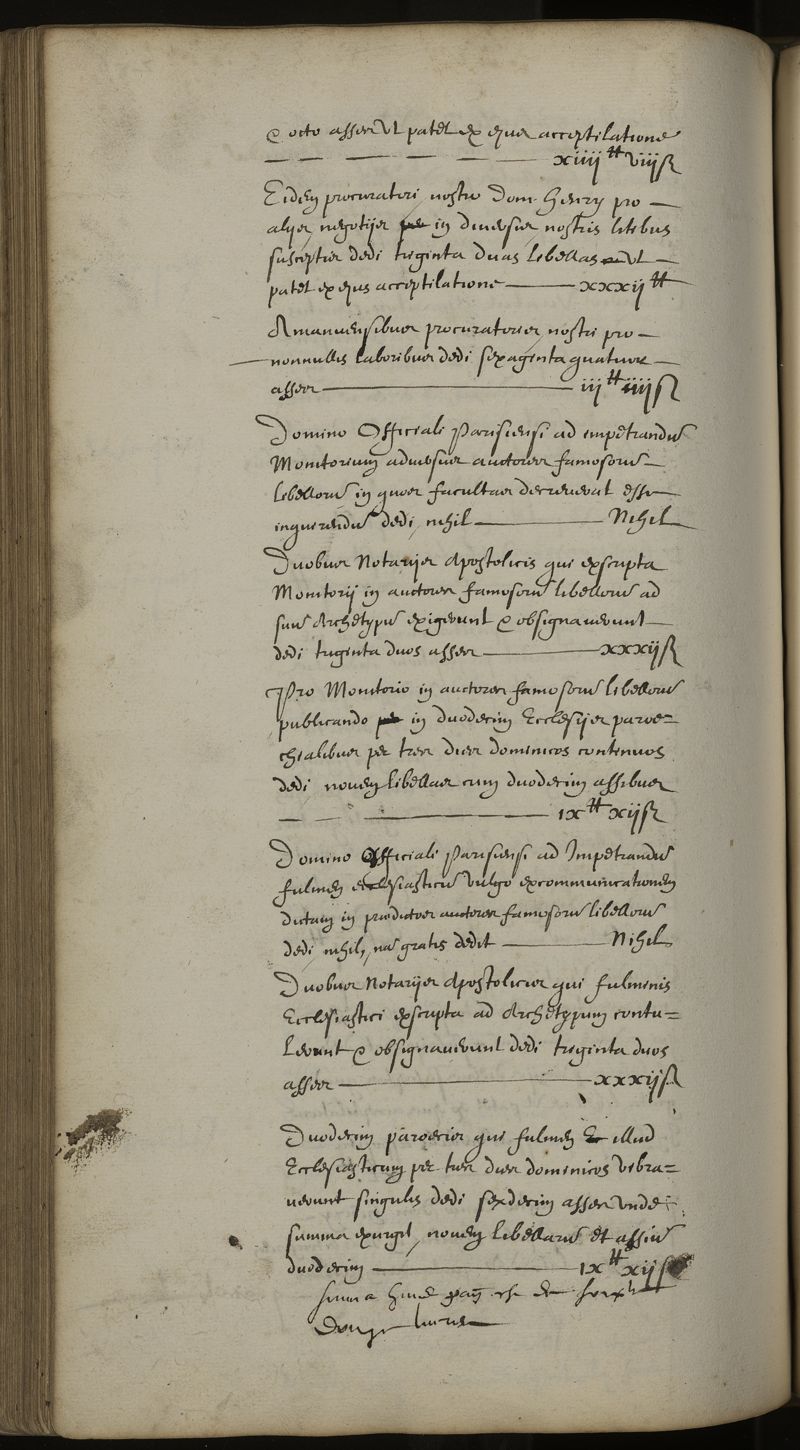 & octo asses Vt patet ex ejus acceptilatione
xiiij ⁗ viijß
Eidem procuratori nostro Dom. Henry pro
alijs negotijs in diuersis nostris litibus
susceptis dedi triginta duas libellas vt
patet ex ejus acceptilatione xxxij ⁗
Amanuensibus procuratoris nostri pro
nonnullis laboribus dedi sexaginta quatuor
asses iij ⁗ iiijß
Domino Officiali Parisiensi ad impetrandū
Monitorium aduersus auctores famosorū
libellorū in quos facultas decreuerat esse
inquirendū dedi nihil Nihil
Duobus Notarijs Apostolicis qui exscripta
Monitorij in auctores famosorū libellorū ad
suū Archetypū exigerunt & obsignauerunt
dedi triginta duos asses xxxijß
Pro Monitorio in auctores famosorū libellorū
publicando in duodecim Ecclesijs paroe=
chialibus per tres dies dominicos continuos
dedi nouem libellas cum duodecim assibus
ix ⁗ xijß
Domino Officiali Parisiensi ad Impetrandū
fulmen ecclesiasticū vulgo excommunicationem
dictam in praedictos auctores famosorū libellorū
dedi nihil, nā gratis dedit Nihil
Duobus Notarijs Apostolicis qui fulminis
Ecclesiastici exscripta ad Archetypum contu=
lerunt & obsignauerunt dedi triginta duos
asses xxxijß
Duodecim paroecis qui fulmen illud
Ecclesiasticum per tres dies dominicos vibra=
uerunt singulis dedi sexdecim asses vnde
summa exurgit nouem libellarū et assiū
duodecim ix ⁗ xijß